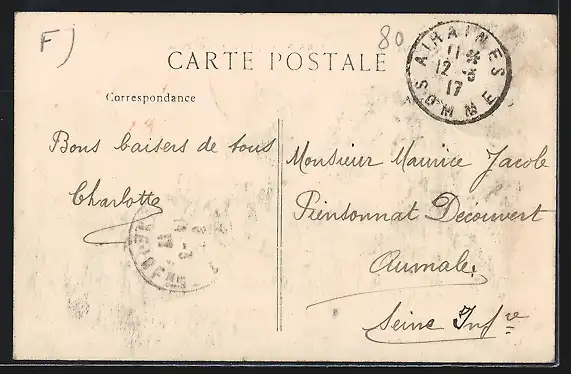 F)
80
CARTE POSTALE
AIRAINES
11 *
12 -3
17
SOMME
Correspondance
Bons baisers de tous
Charlotte
Monsieur Maurice Jacob
Piensonnat Découvert
Aumale.
Seine Infre